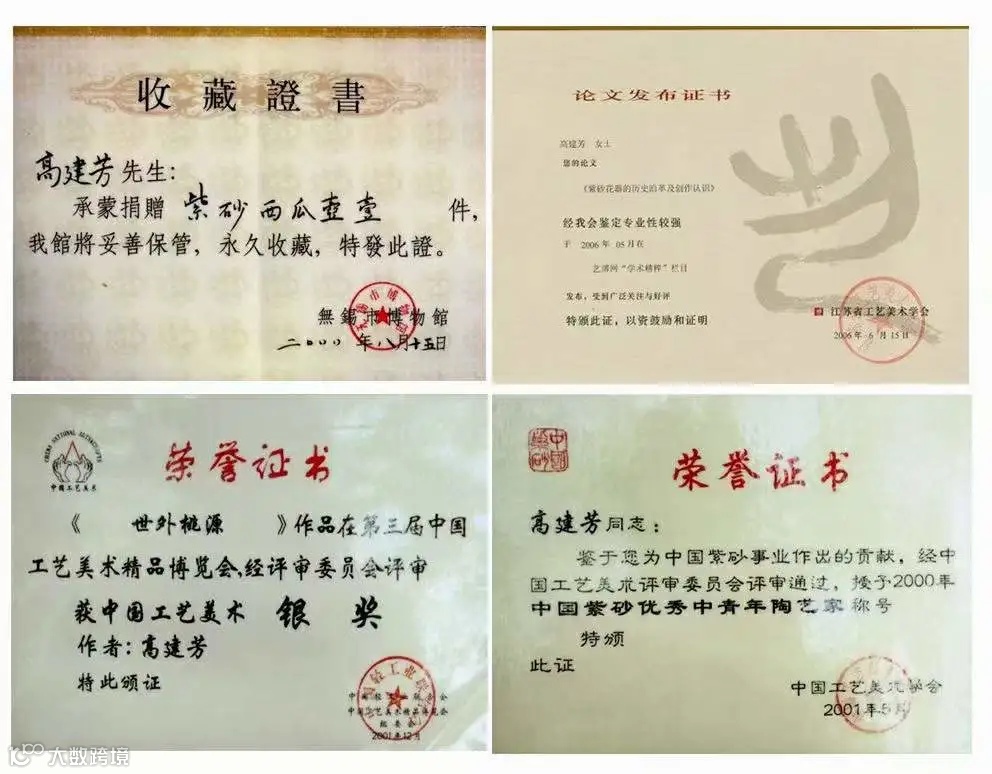 收藏證書
高建芳先生:
承蒙捐贈 紫砂西瓜壺壹 件,
我館將妥善保管，永久收藏，特發此證。
無錫市博物館
二〇〇〇年八月十五日
论文发布证书
高建芳 女士
您的论文
《紫砂花器的历史沿革及创作认识》
经我会鉴定专业性较强
于 2006 年 05月在
艺博网“学术精粹”栏目
发布，受到广泛关注与好评
特颁此证，以资鼓励和证明
江苏省工艺美术学会
2006 年 6 月 15日
中国工艺美术
荣誉证书
《 世外桃源 》作品在第三届中国
工艺美术精品博览会,经评审委员会评审
获中国工艺美术 银 奖
作者:高建芳
特此颁证
2001年12月
中国紫砂
荣誉证书
高建芳同志:
鉴于您为中国紫砂事业作出的贡献，经中
国工艺美术评审委员会评审通过，授于2000年
中国紫砂优秀中青年陶艺家称号
特颁
此证
中国工艺美术学会
2001年5月
大数跨境